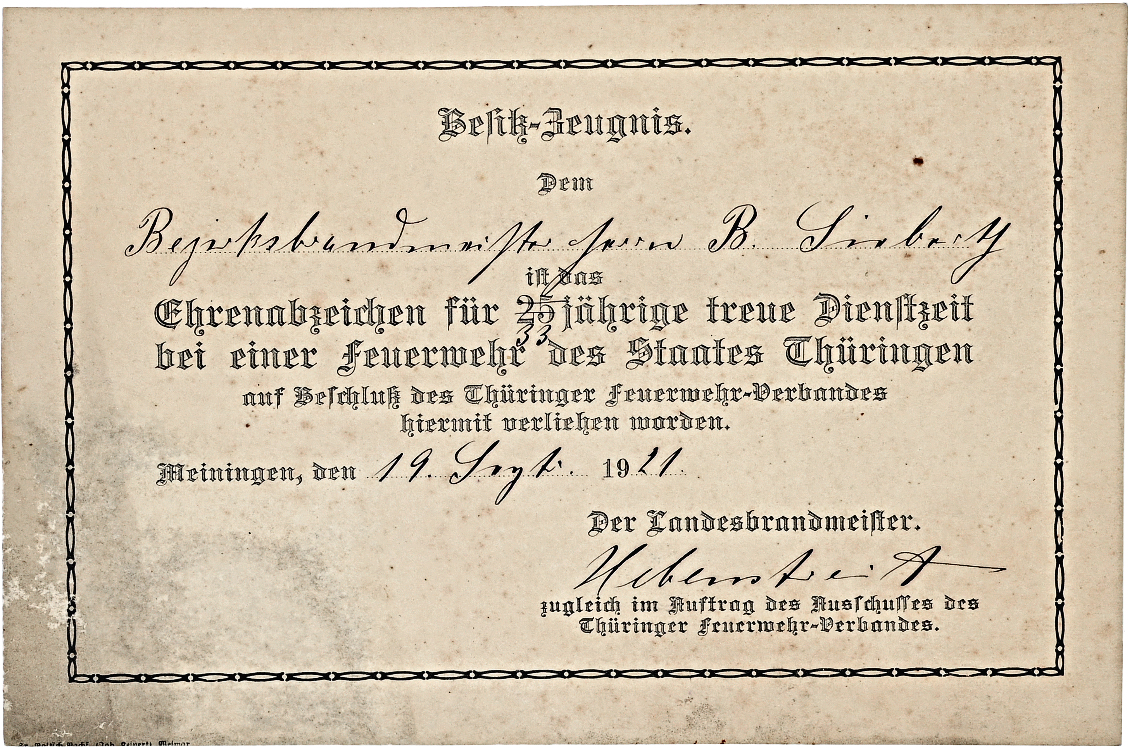 Besitz-Zeugnis.
Dem
Bezirksbrandmeister Herrn B. Siebarth
ist das
Ehrenabzeichen für 25 jährige treue Dienstzeit
33
bei einer Feuerwehr des Staates Thüringen
auf Beschluß des Thüringer Feuerwehr-Verbandes
hiermit verliehen worden.
Meiningen, den 19. Sept. 1921.
Der Landesbrandmeister.
Hebenstreit
zugleich im Auftrag des Ausschusses des
Thüringer Feuerwehr-Verbandes.
Weimar